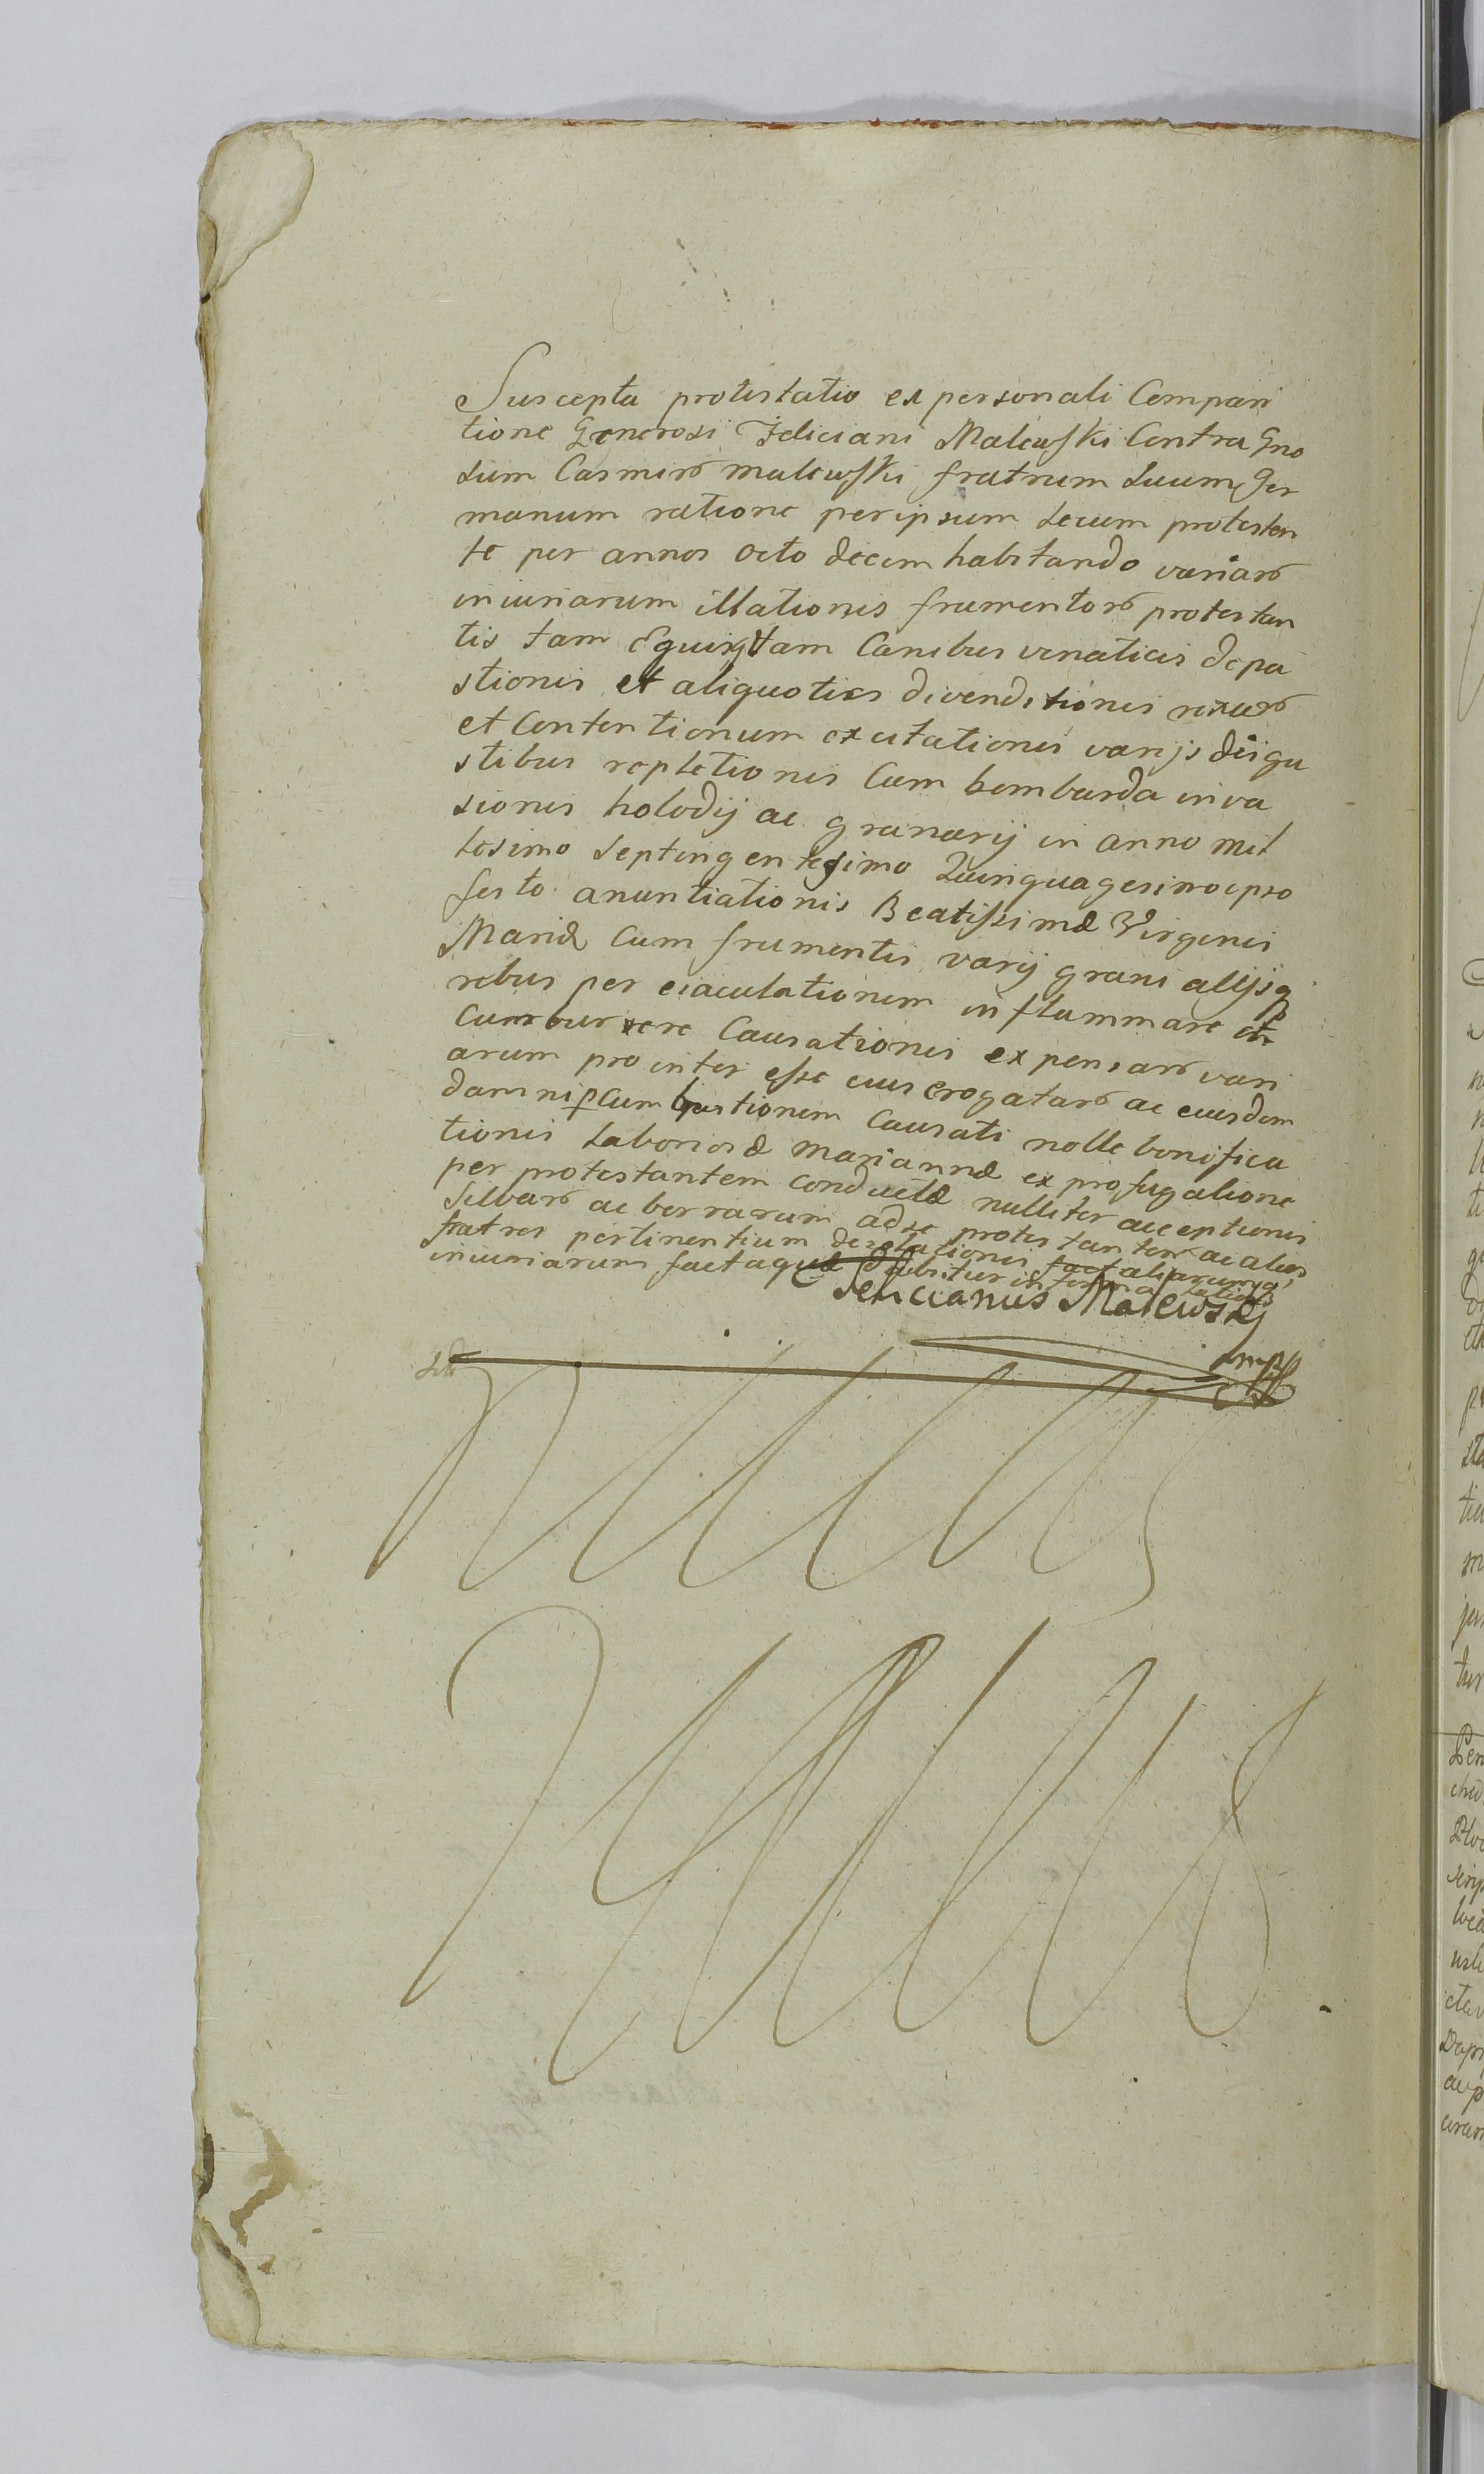 Suscepta protestatio ex personali Compari
tione Generosi Feliciani Malewski Contra Gno
sum Casmirũ malewski fratrum suum Ger
manum ratione per ipsum secum protestan
te per annos octo decem habitando variarũ
iniuriarum illationis frumentorũ protestan
tis tam Equis tam Canibus venaticis depa
stionis et aliquoties divenditionis rixarũ
et Contentionum excitationis varijs disgu
stibus repletionis Cum bombarda inva
sionis holodij ac granarij in anno mil
lesimo septingentesimo Quinquagesimo ipso
festo anuntiationis Beatissimæ Virginis
Mariæ Cum frumentis varij grani allijsq
rebus per eiaculationem inflammare et
Cumburere Causationis expensarũ vari
arum pro inter esse eius erogatarũ ac eiusdem
damni per Cumbustionem Causati nolle bonifica
tionis Laboriosæ mariannæ ex profugatione
per protestantem conductæ nulliter acceptionis
Silvarũ ac borrarum ad se protestantem ac alios
fratres pertinentium desolationis aliarumq
iniuriarum factaque
Felicianus Malewskj
mpp